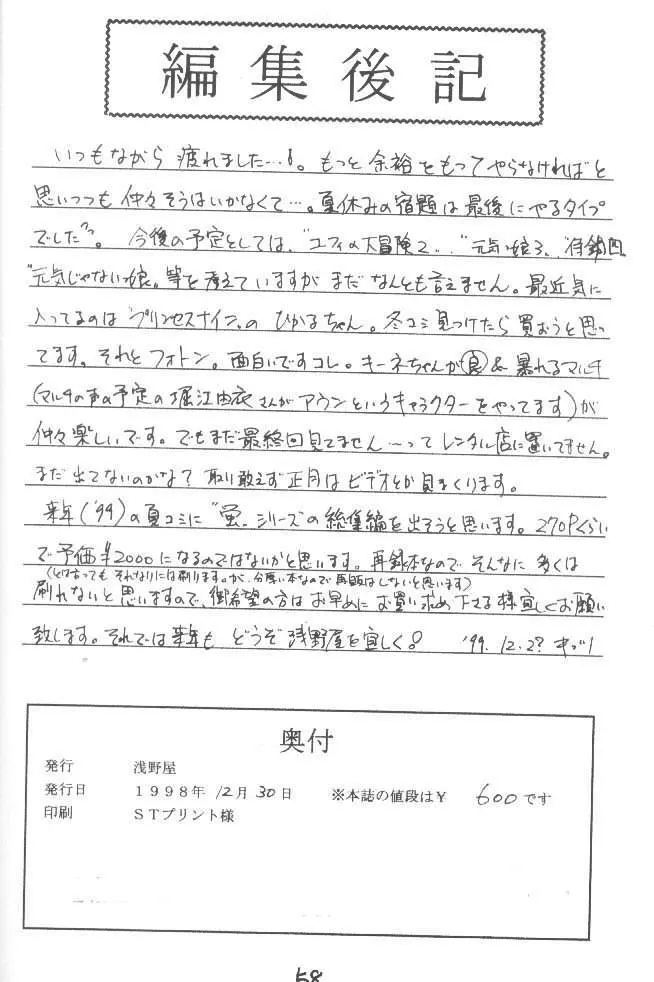 編集後記
いつもながら 疲れました…。もっと 余裕をもってやらなければと
思いつつも 仲々そうはいかなくて…。夏休みの宿題は最後にやるタイプ
でした。 今後の予定としては、"ユフィの大冒険2" "元気っ娘3"
"元気じゃないっ娘。等を考えていますが まだ なんとも言えません。最近気に
入ってるのは"プリンセスナイン"の ひかるちゃん。冬コミ見つけたら買おうと思っ
てます。それと フォトン。面白いですコレ。キーネちゃんが良&暴れるマルチ
(マルチの声の予定の堀江由衣さんが アウンというキャラクターをやってます)が
仲々楽しいです。でもまだ最終回見てません…って レンタル店に置いてません。
まだ出てないのかな? 取り敢えず正月は ビデオとか見まくります。
来年('99)の夏コミに"蛍"シリーズの総集編を出そうと思います。270Pくらい
で予価¥2000になるのではないかと思います。再録本なので そんなに多くは
(とは言っても それなりには刷りますが、分厚い本なので再販はしないと思います)
刷れないと思いますので、御希望の方はお早めにお買い求め下さる様宜しくお願い
致します。それでは来年も どうぞ浅野屋を宜しく! '99.12.27
奥付
発行 浅野屋
発行日 1998年 12月 30日 ※本誌の値段は¥ 600です
印刷 STプリント様
58